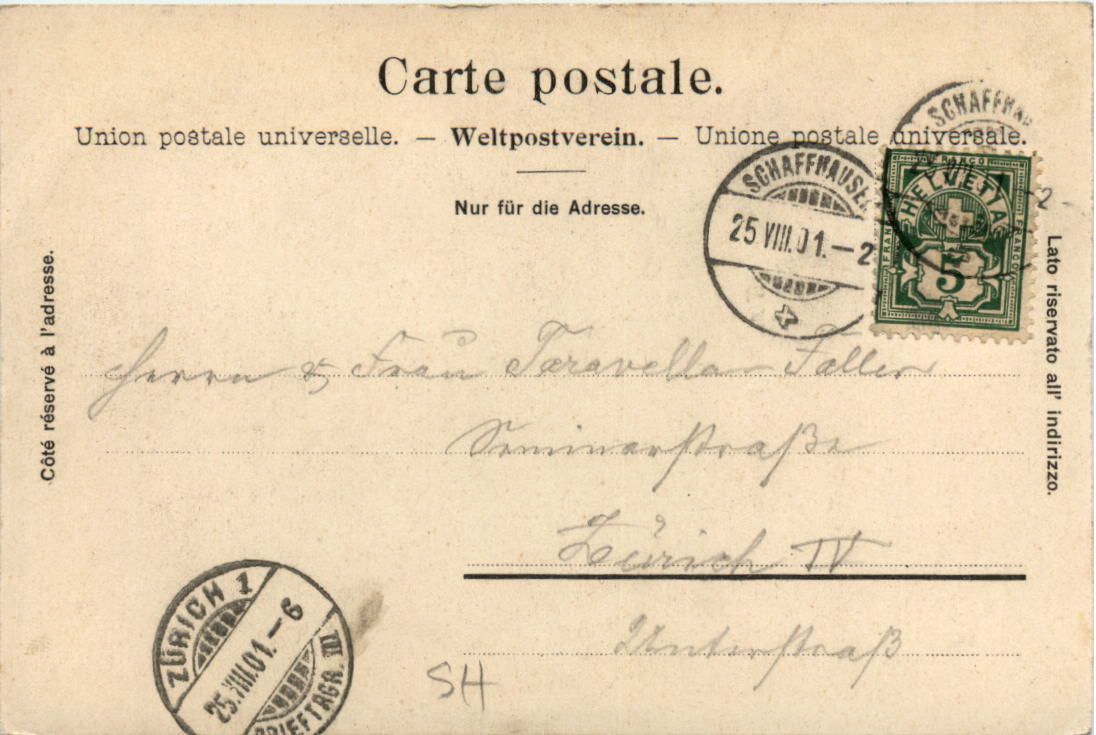 Carte postale.
Union postale universelle. — Weltpostverein. — Unione postale universale.
Nur für die Adresse.
Côté réservé à l'adresse.
Lato riservato all' indirizzo.
SCHAFFHAUSEN
25.VIII.01.—2
SCHAFFHAU
—2
FRANCO
HELVETIA
FRANCO
5
Herrn & Frau Taravella-Faller
Seminarstraße
Zürich IV
Unterstraß
ZÜRICH 1
25.VIII.01.—6
BRIEFTRGR. III
SH